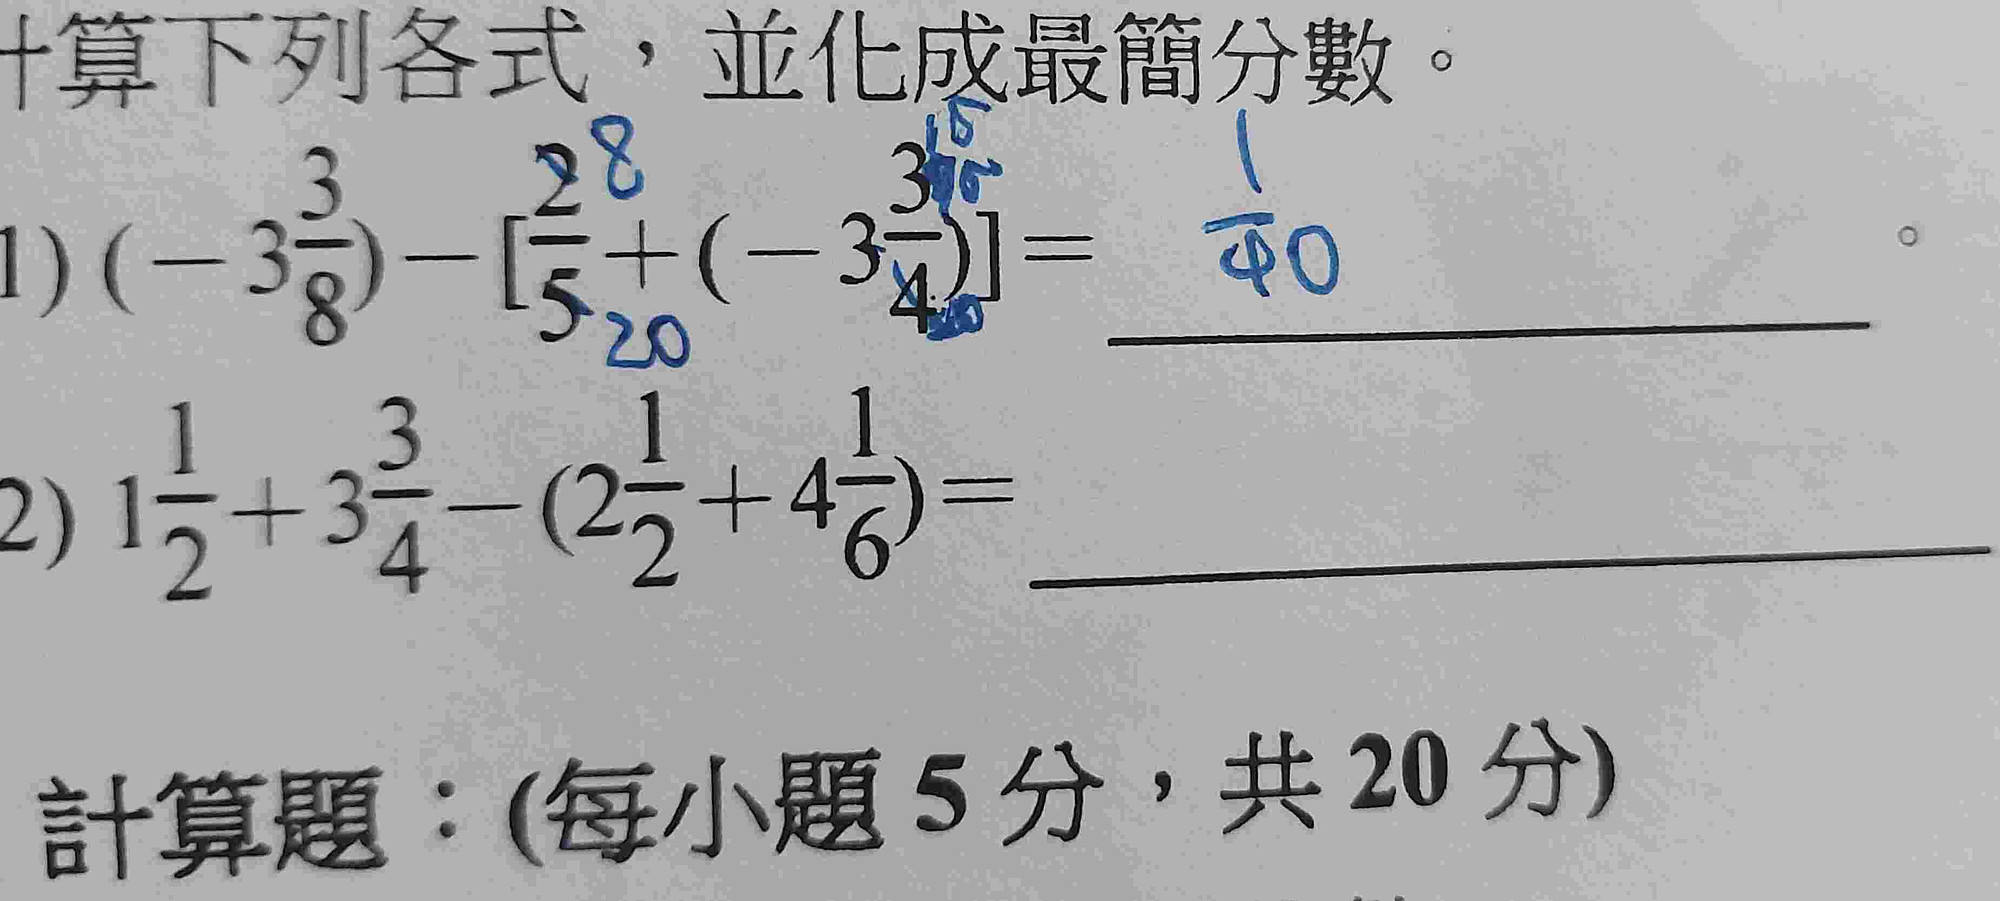 計算下列各式，並化成最簡分數。
1) (－3 3/8)－[2/5＋(－3 3/4)]＝ 1/40 。
8 15
20
2) 1 1/2＋3 3/4－(2 1/2＋4 1/6)＝
計算題：(每小題 5 分，共 20 分)